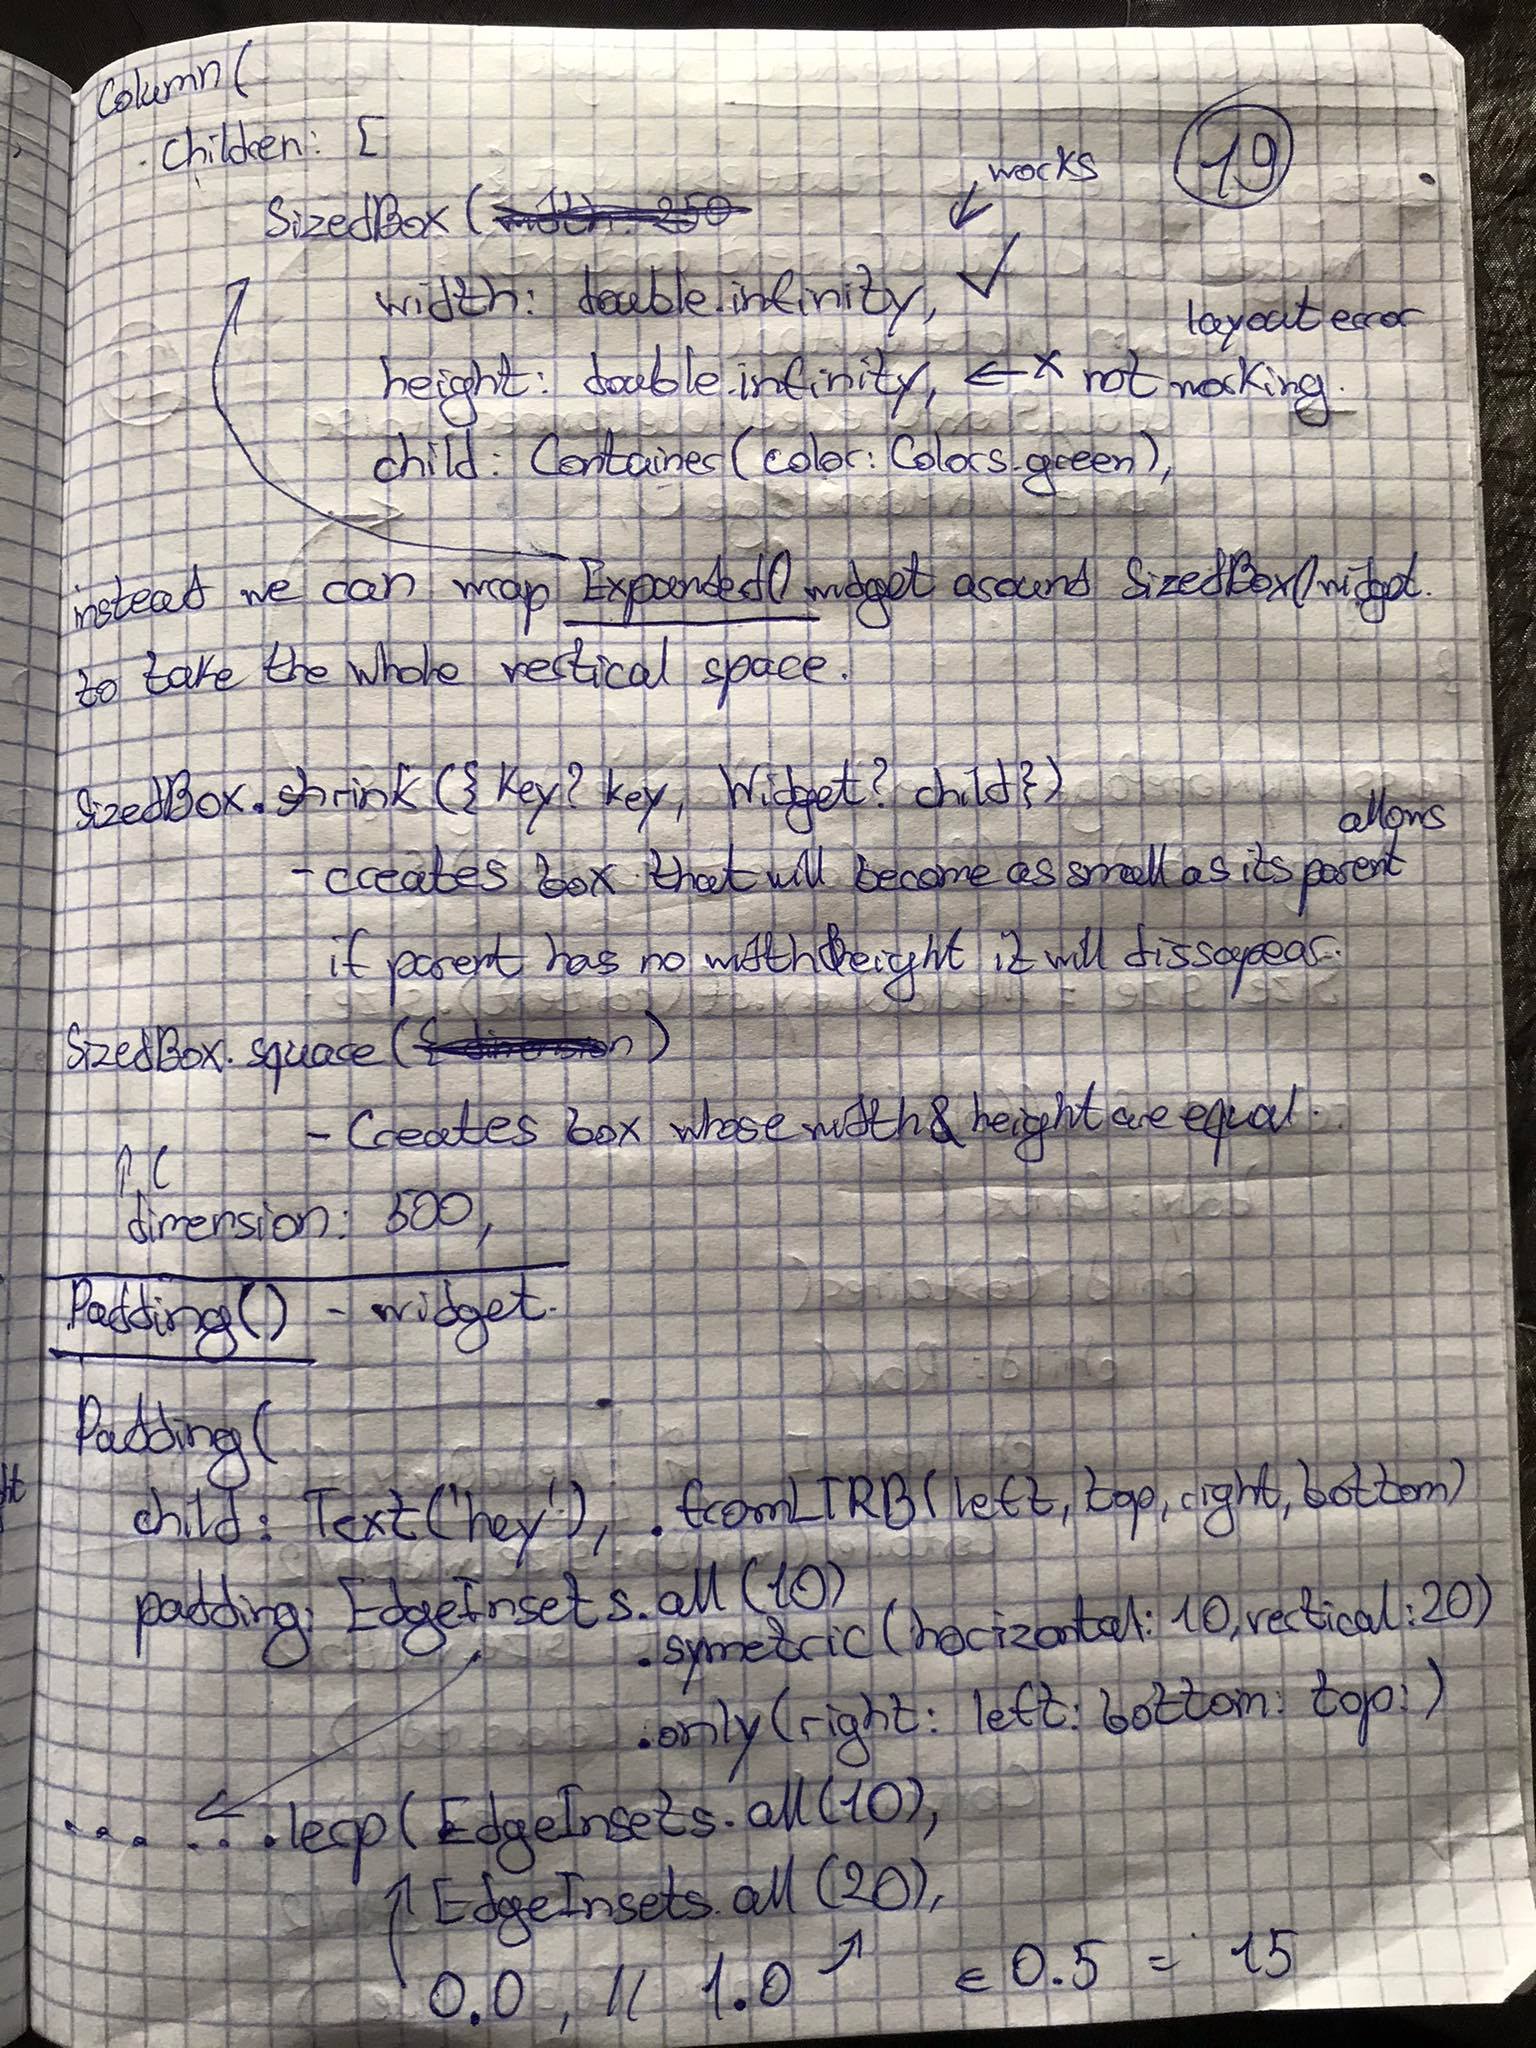 Column(
children: [
19
works
SizedBox (
width: double.infinity, ✓
layout error
height: double.infinity, ← x not working.
child: Container(color: Colors.green),
instead we can wrap Expanded() widget around SizedBox() widget.
to take the whole vertical space.
SizedBox.shrink ({ Key? key, Widget? child})
allows
- creates box that will become as small as its parent
if parent has no width&height it will dissapear.
SizedBox.square ( )
- Creates box whose width & height are equal.
↑ (
dimension: 500,
Padding() - widget.
Padding(
child: Text('hey'), .fromLTRB(left, top, right, bottom)
padding: EdgeInsets.all(10)
.symetric(horizontal: 10, vertical: 20)
.only(right: left: bottom: top: )
.......lerp( EdgeInsets.all(10),
EdgeInsets.all(20),
0.0, // 1.0 ↗ ← 0.5 = 15